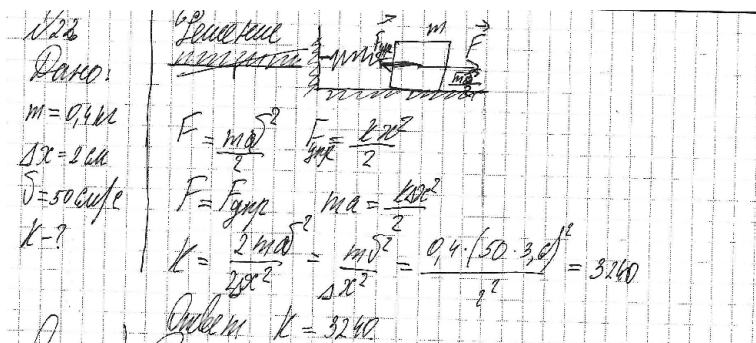 №22 Решение
Дано:
m = 0,4 кг
Δx = 2 см
υ = 50 см/с
k - ?
Fупр m F
F = mаυ²/2 Fупр = kx²/2
F = Fупр ma = kΔx²/2
k = 2mаυ²/2Δx² = mυ²/Δx² = 0,4·(50·3,6)²/2² = 3240
Ответ k = 3240